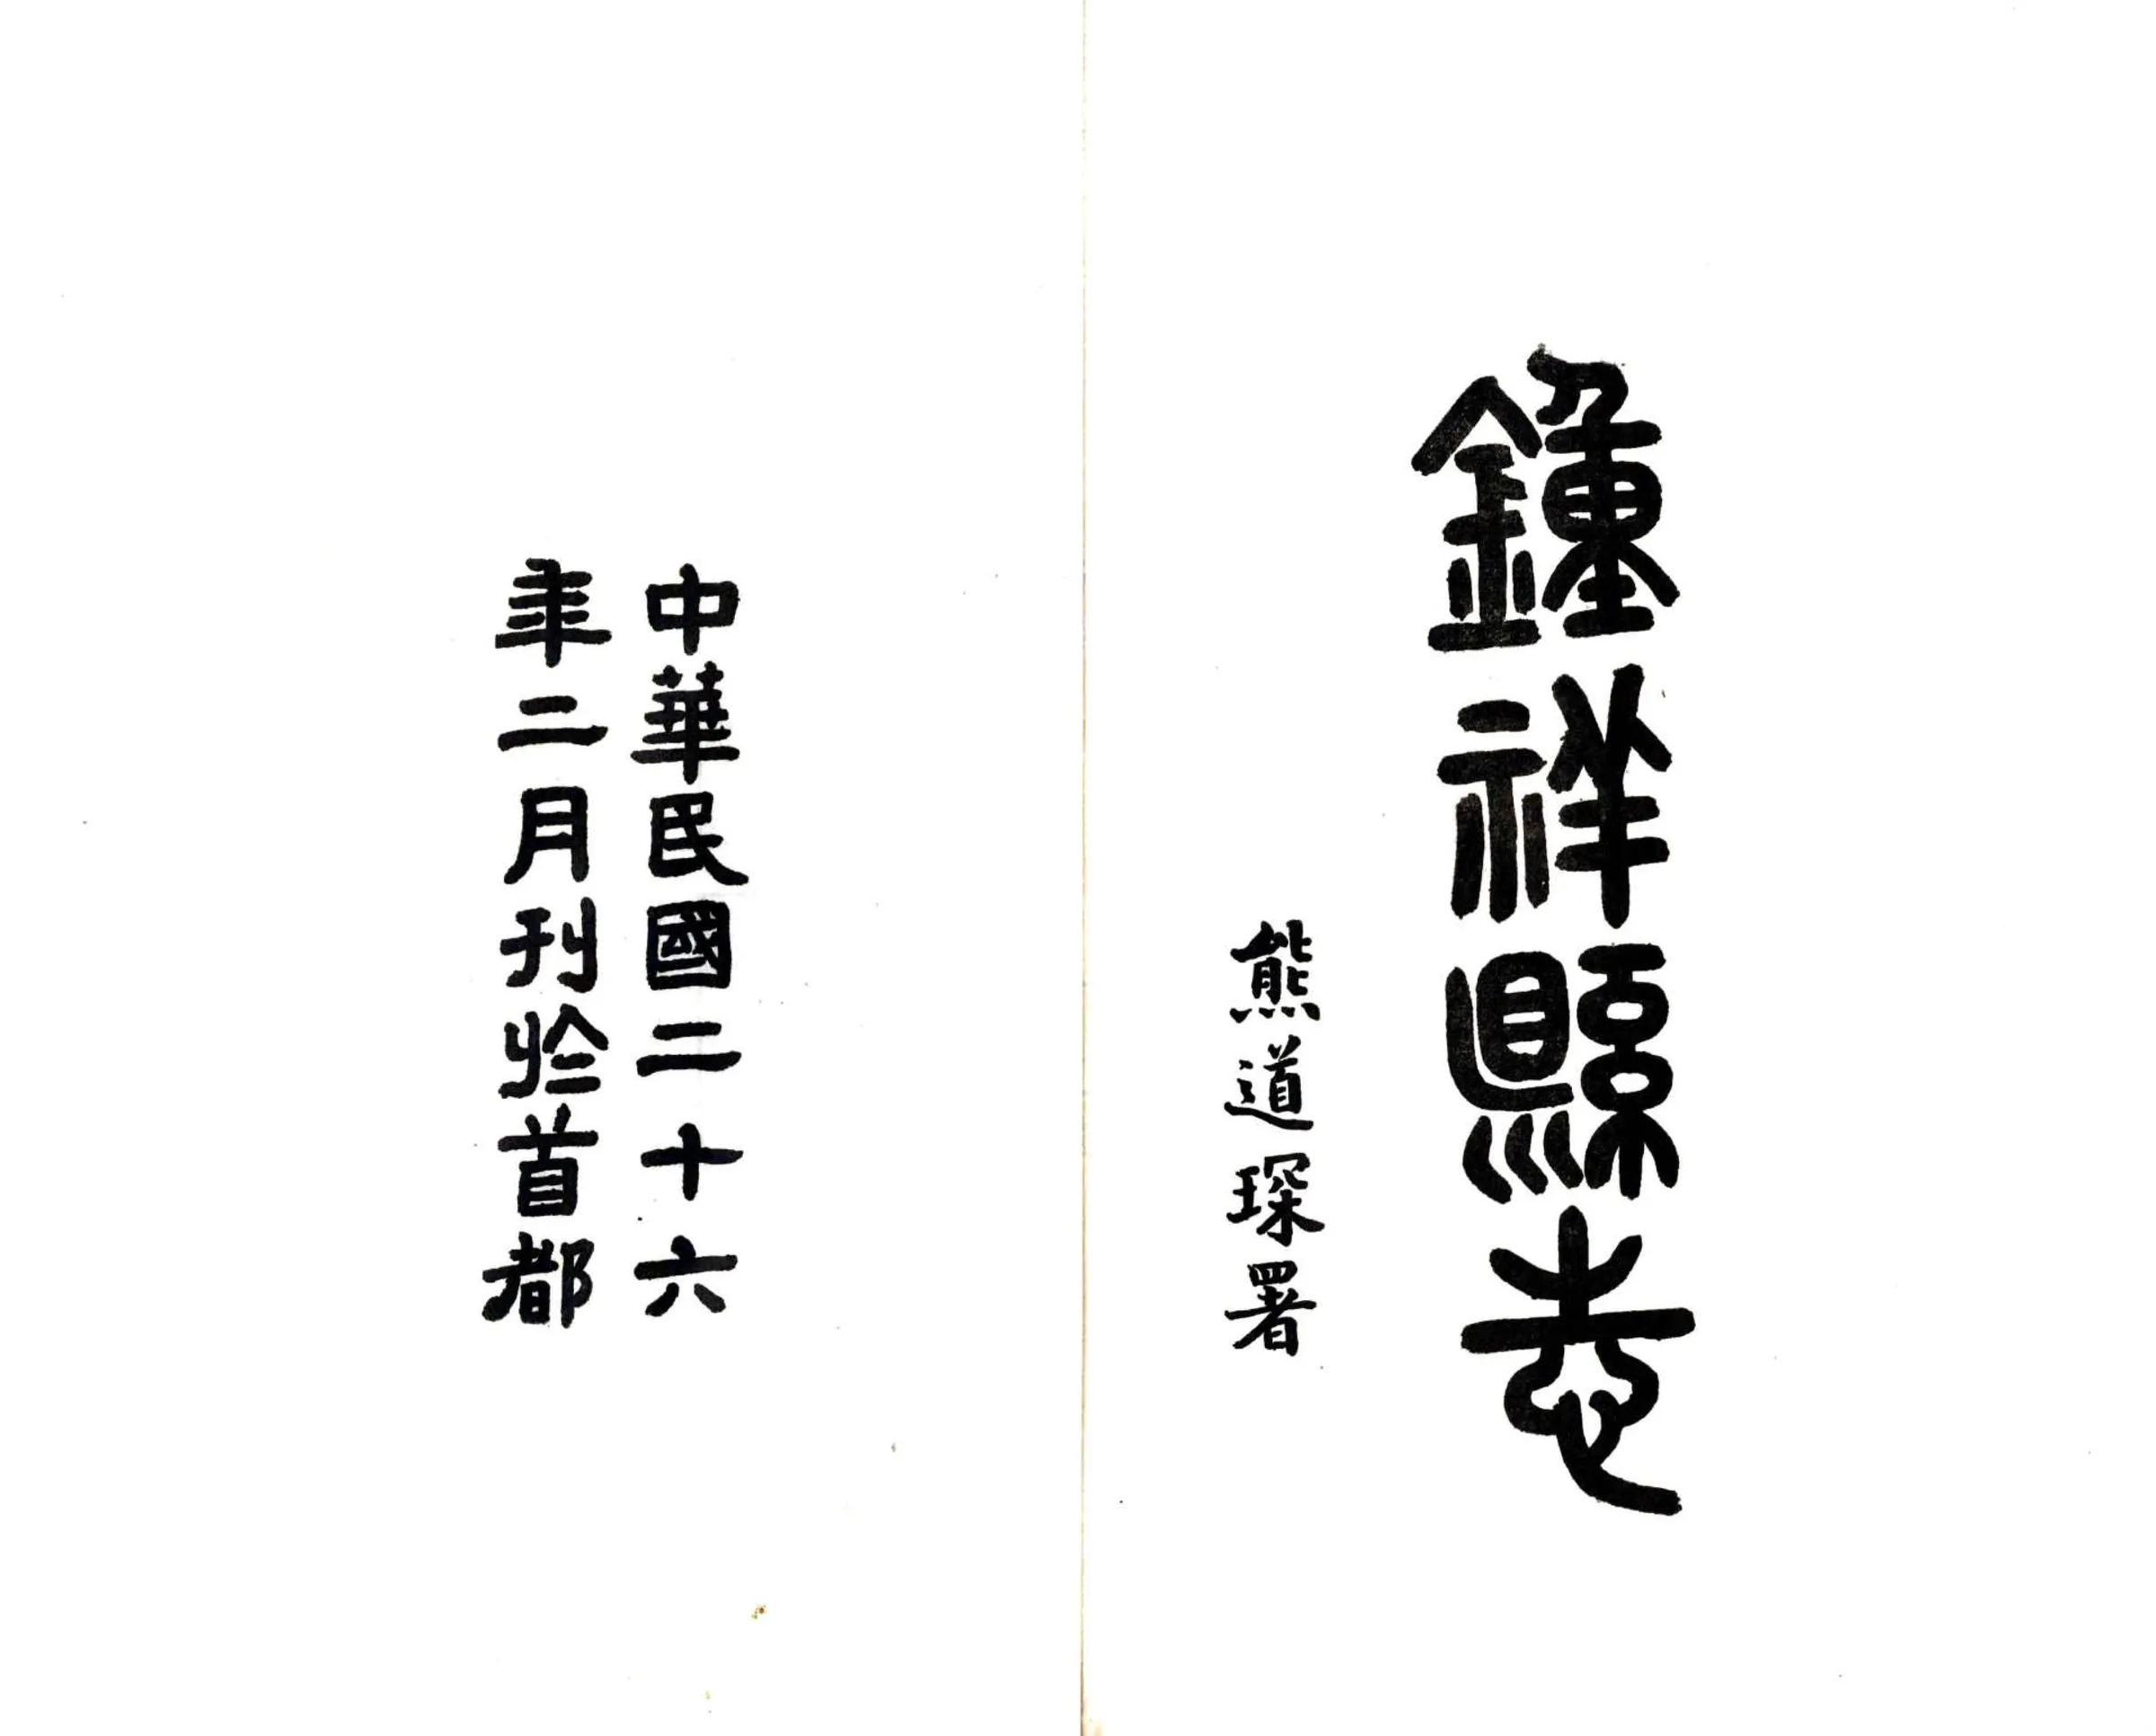 鍾祥縣志
熊道琛署
中華民國二十六
年二月刊於首都